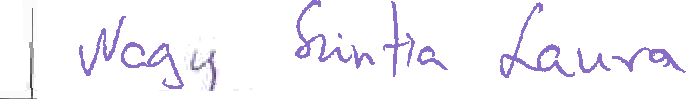 Nagy Szintia Laura